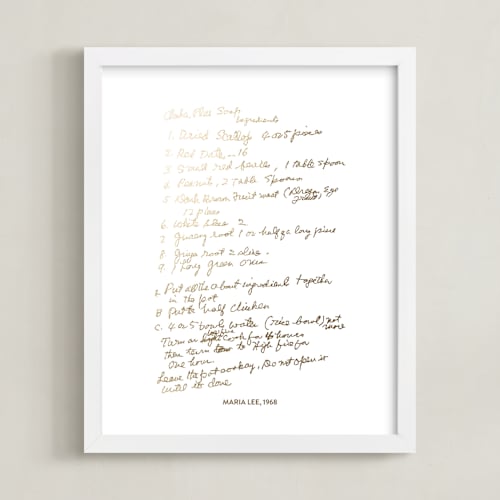 Soup
Ingredients
1. Dried Scallop 4 or 5 pieces
2. Red Date -- 16
3. Small red beans, 1 table spoon
4. Peanut, 2 Table Spoons
5. Dark Brown Fruit meat (Dragon Eye
12 pieces
6. White 2
7. Ginseng root 1 or half of a long piece
8. Ginger root 2 slice.
9. 1 Long Green Onion
A. Put all the about ingredient together
in the pot
B Put the half chicken
C. 4 or 5 bowl water (rice-bowl) not more
Turn on light Cook for 4 hours
then turn to High fire for
One hour
Leave the pot cooking, Do not open it
until its done
MARIA LEE, 1968